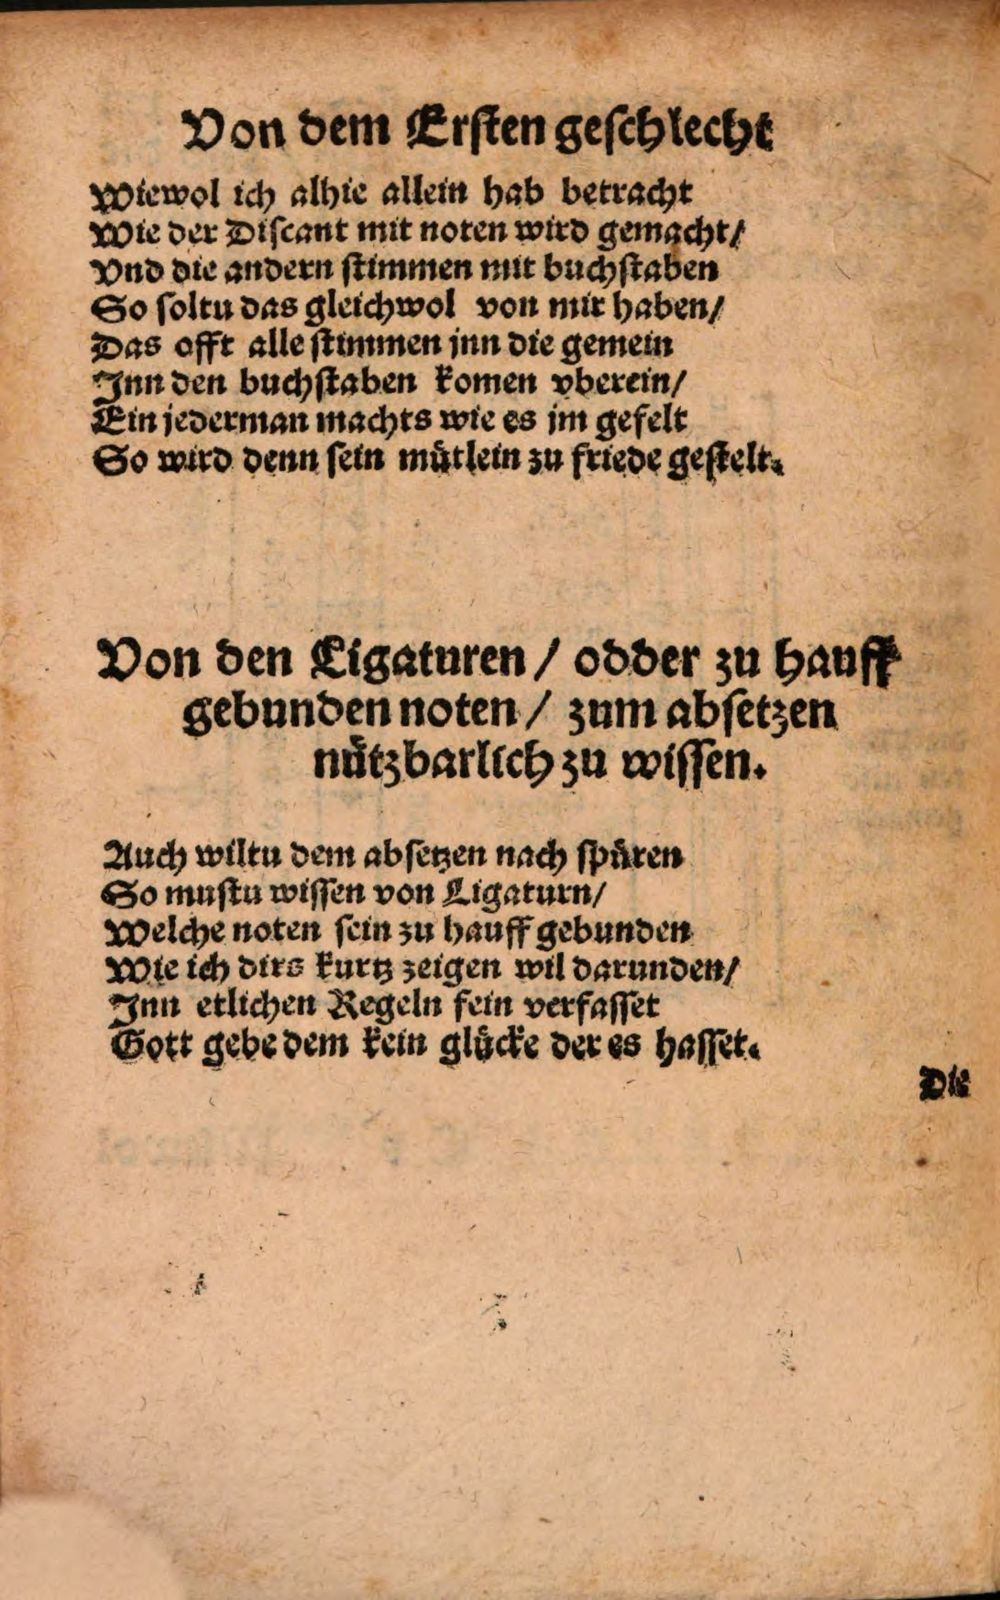 Von dem Ersten geschlecht
Wiewol ich alhie allein hab betracht
Wie der Discant mit noten wird gemacht/
Vnd die andern stimmen mit buchstaben
So soltu das gleichwol von mir haben/
Das offt alle stimmen jnn die gemein
Jnn den buchstaben komen vberein/
Ein jederman machts wie es jm gefelt
So wird denn sein muͤtlein zu friede gestelt.
Von den Ligaturen / odder zu hauff
gebunden noten / zum absetzen
nuͤtzbarlich zu wissen.
Auch wiltu dem absetzen nach spuͤren
So mustu wissen von Ligaturn/
Welche noten sein zu hauff gebunden
Wie ich dirs kurtz zeigen wil darunden/
Jnn etlichen Regeln fein verfasset
Gott gebe dem kein gluͤcke der es hasset.
Die